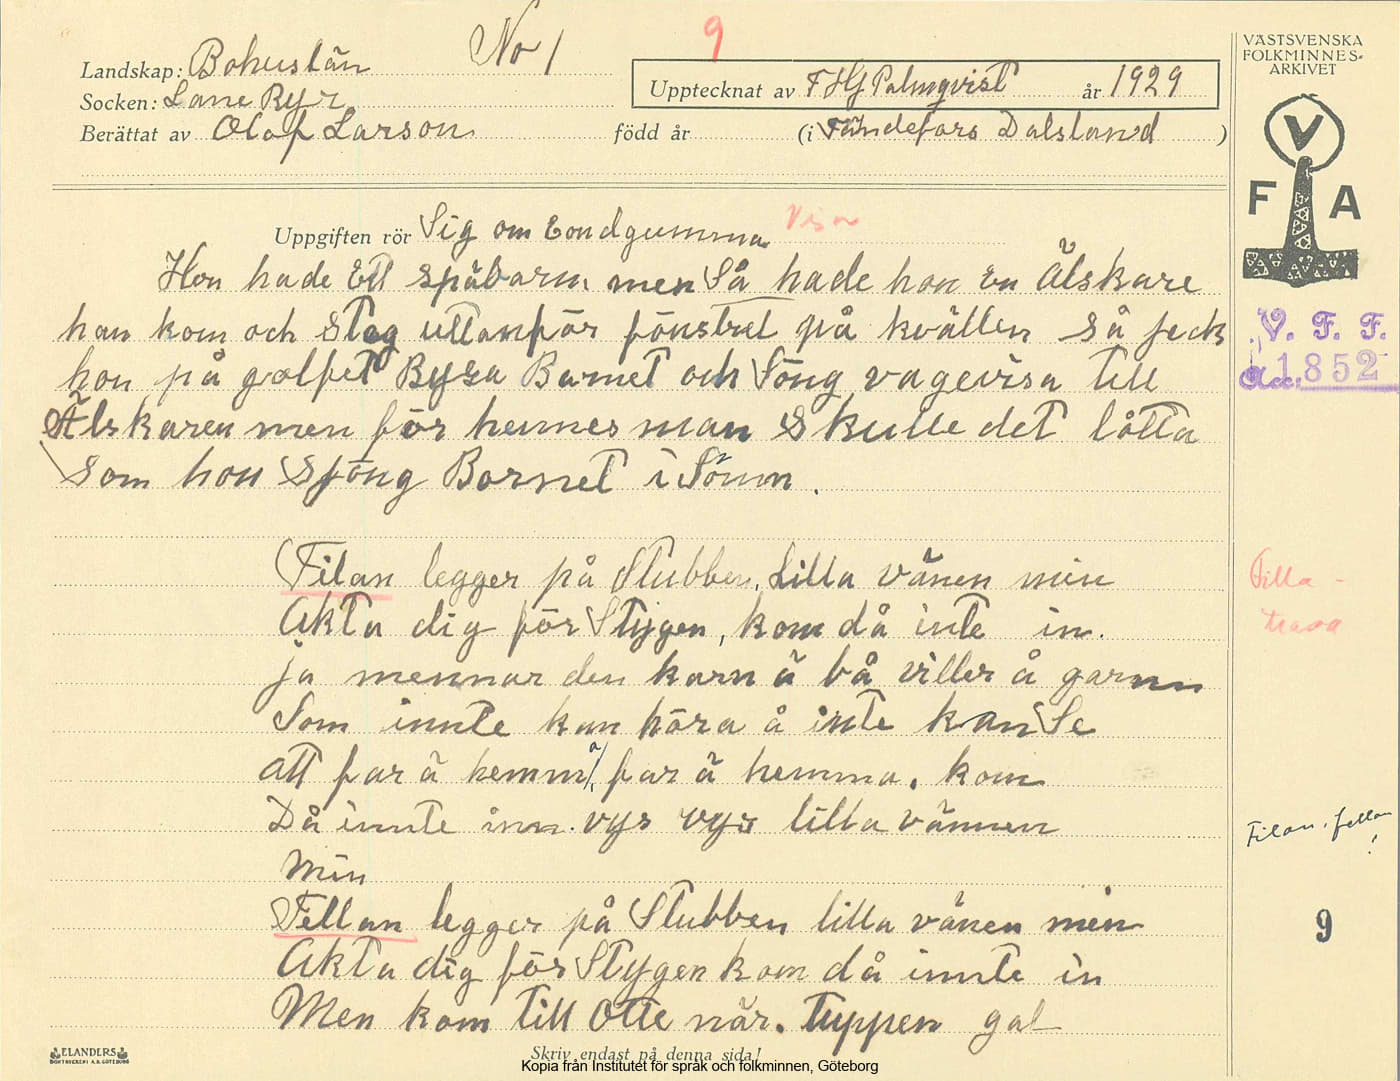 No 1
9
Landskap: Bohuslän
Socken: Lane Ryr
Berättat av Olof Larson
Upptecknat av F H G Palmqvist år 1929
född år (i Fändefors Dalsland )
VÄSTSVENSKA
FOLKMINNES-
ARKIVET
V
F A
Uppgiften rör Sig om Bondgumma
Visa
Hon hade Ett späbarn men Så hade hon En Älskare
han kom och Stog uttanför fönstret på kvällen så feck
hon på gålfet Bysa Barnet och Söng vagevisa till
Älskaren men för hennes man Skulle det låtta
Som hon Sjöng Barnet i Sömn.
V. F. F.
Acc. 1852
Filan legger på Stubben, Lilla vänen min
Akta dig för Stygen, kom då inte in.
ja mennar den karn ä bå viller å garnn
Som innte kan höra å inte kan Se
att far ä hemma, far ä hemma, kom
Då innte inn. vys vys lilla vännen
Min
Fellan legger på Stubben lilla vänen min
Akta dig för Stygen kom då innte in
Men kom till Otte när. tuppen gal
Filla-
trasa
Filan, fellan
!
9
ELANDERS
BOKTRYCKERI A.B. GÖTEBORG
Skriv endast på denna sida!
Kopia från Institutet för språk och folkminnen, Göteborg